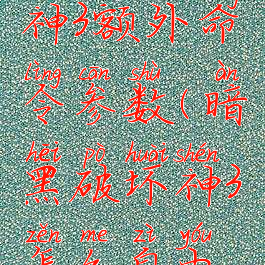 神3额外命
lìng cān shù àn
令参数(暗
hēi pò huài shén
黑破坏神3
zěn me zì yóu
怎么自由